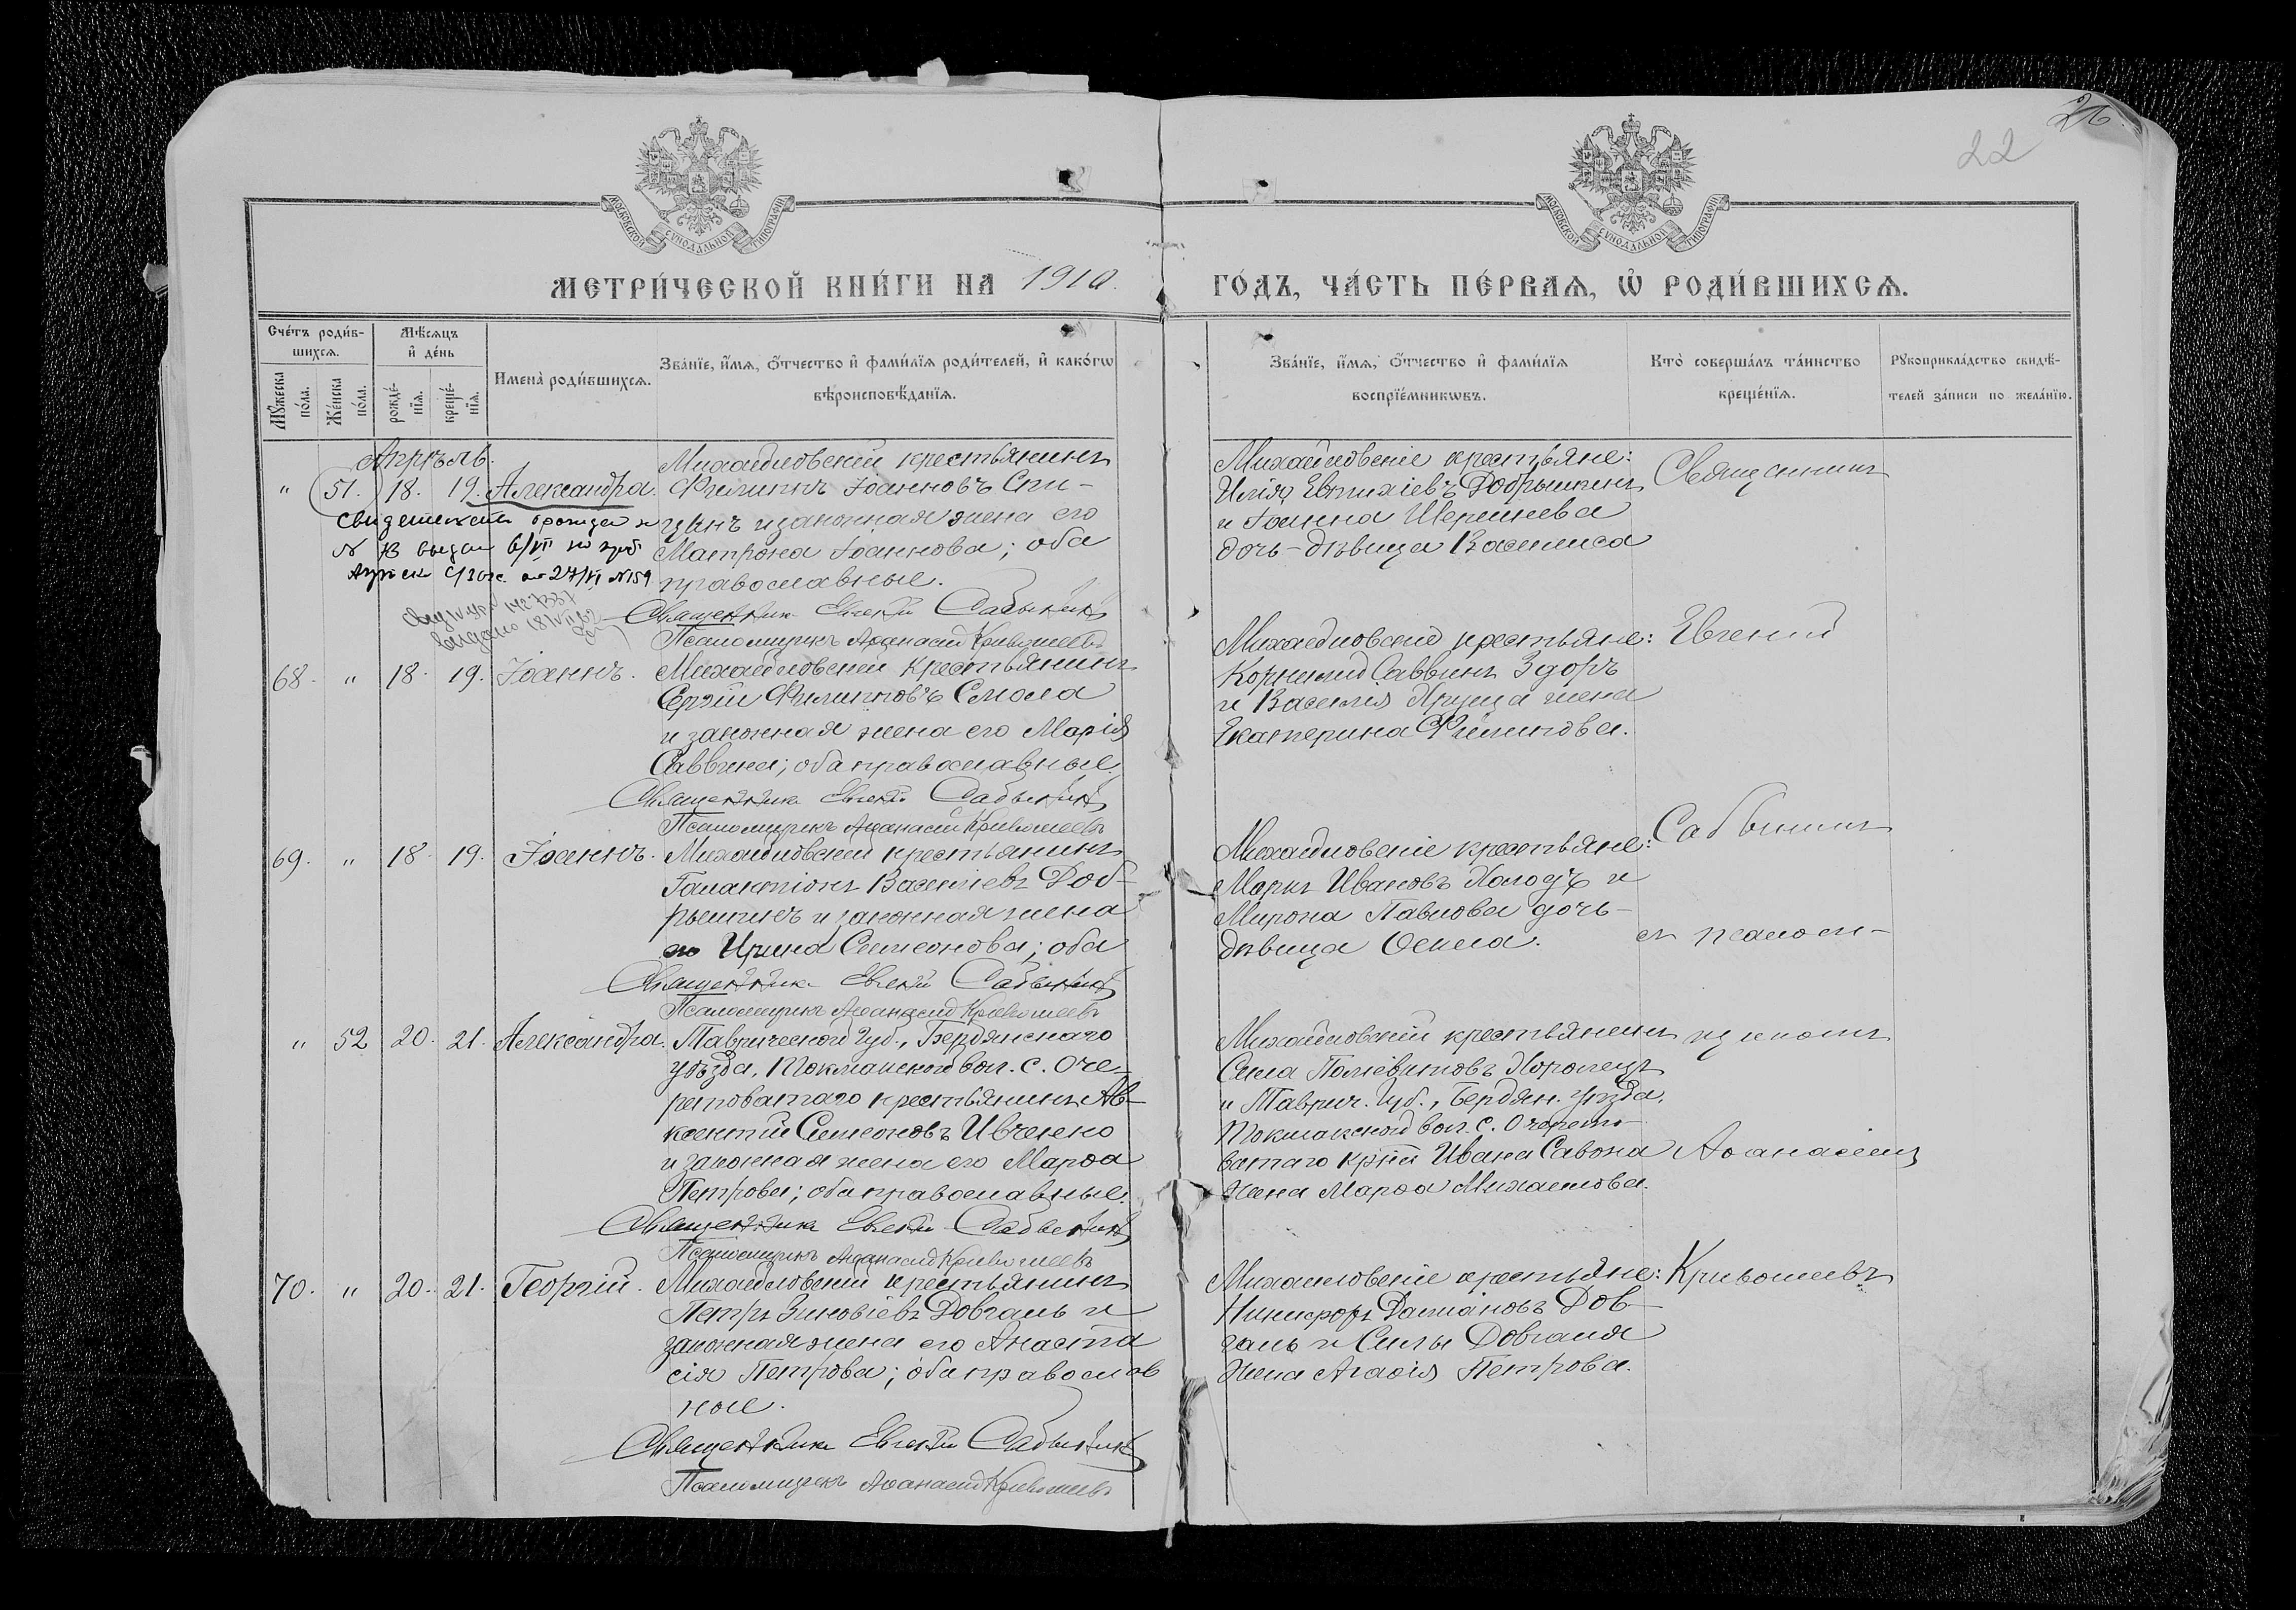 22
26
МОСКОВСКОЙ СѴНОДАЛЬНОЙ ТИПОГРАФІИ
МОСКОВСКОЙ СѴНОДАЛЬНОЙ ТИПОГРАФІИ
МЕТРИ́ЧЕСКОЙ КНИ́ГИ НА 1910.
ГО́ДЪ, ЧА́СТЬ ПЕ́РВАѦ, Ѡ҆ РОДИ́ВШИХСѦ.
Сче́тъ роди́в-
шихсѧ.
Мꙋ́жеска по́ла.
Же́нска по́ла.
Мѣ́сѧцъ
и҆ де́нь
рожде́-
нїѧ.
креще́-
нїѧ.
Имена̀ роди́вшихсѧ.
Зва́нїе, и҆́мѧ, ѻ҆́тчество и҆ фами́лїѧ роди́телей, и҆ како́гѡ
вѣроисповѣ́данїѧ.
Зва́нїе, и҆́мѧ, ѻ҆́тчество и҆ фами́лїѧ
воспрїе́мникѡвъ.
Кто̀ соверша́лъ та́инство
креще́нїѧ.
Рꙋкоприкла́дство свидѣ́-
телей за́писи по жела́нїю.
Апрѣль.
" 51. 18. 19. Александра.
Михайловскій крестьянинъ
Филиппъ Іоанновъ Спи-
цинъ и законная жена его
Матрона Іоаннова; оба
православные.
Священникъ Евгеній Сабынинъ
Псаломщикъ Аѳанасій Кривошеевъ
Михайловскіе крестьяне:
Илія Евтихіевъ Добрышинъ
и Іоанна Шерешнева
дочь-дѣвица Василиса
Священникъ
68. " 18. 19. Іоаннъ.
Михайловскій крестьянинъ
Сергій Филипповъ Смола
и законная жена его Марія
Саввина; оба православные.
Священникъ Евгеній Сабынинъ
Псаломщикъ Аѳанасій Кривошеевъ
Михайловскіе крестьяне:
Корнилій Саввинъ Здоръ
и Василія Хруща жена
Екатерина Филиппова.
Евгеній
69. " 18. 19. Іоаннъ.
Михайловскій крестьянинъ
Галактіонъ Василіевъ Доб-
рышинъ и законная жена
его Ирина Симеонова; оба
Священникъ Евгеній Сабынинъ
Псаломщикъ Аѳанасій Кривошеевъ
Михайловскіе крестьяне:
Маркъ Ивановъ Холодъ и
Мирона Павлова дочь-
дѣвица
Сабынинъ
съ псалом-
" 52 20. 21. Александра.
Таврической Губ., Бердянскаго
уѣзда, Токмакской вол. с. Оче-
ретоватаго крестьянинъ Ав-
ксентій Симеоновъ Ивченко
и законная жена его Марѳа
Петрова; оба православные.
Священникъ Евгеній Сабынинъ
Псаломщикъ Аѳанасій Кривошеевъ
Михайловскій крестьянинъ
Сила Поліевктовъ Хоролецъ
и Таврич. Губ., Бердян. уѣзда,
Токмакской вол. с. Очерето-
ватаго Ивана Савона
жена Марѳа Михаилова.
щикомъ
Аѳанасіемъ
70. " 20. 21. Георгій.
Михайловскій крестьянинъ
Петръ Зиновіевъ Довгаль и
законная жена его Анаста
сія Петрова; оба православ
ные.
Священникъ Евгеній Сабынинъ
Псаломщикъ Аѳанасій Кривошеевъ
Михайловскіе крестьяне:
Никифоръ Даміановъ Дов-
галь и Силы Довгаля
жена Агаѳія Петрова.
Кривошеевъ